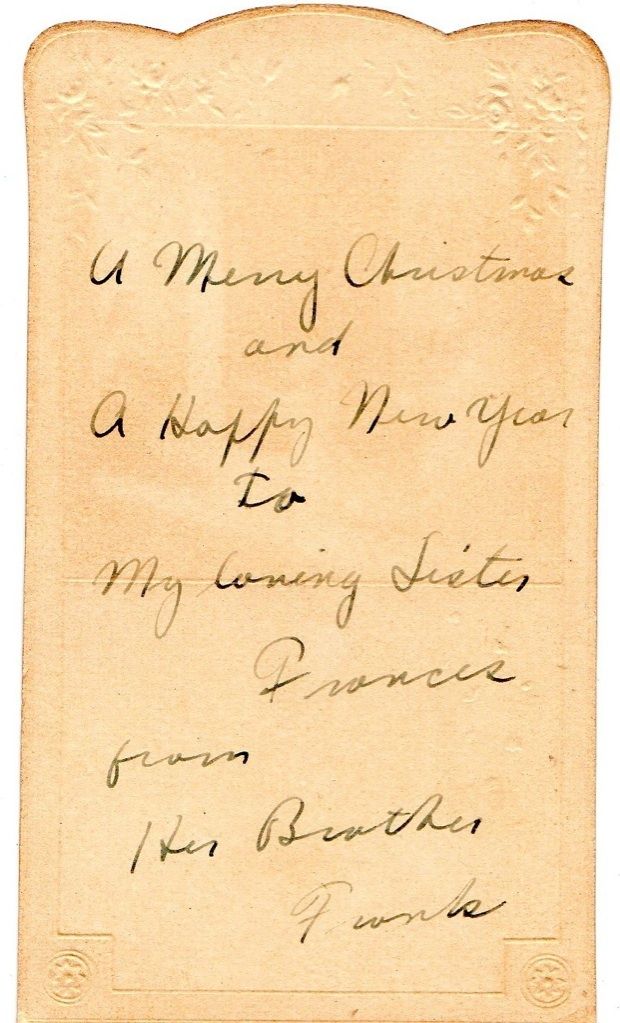 A Merry Christmas
and
A Happy New Year
to
My loving Sister
Frances
from
Her Brother
Frank